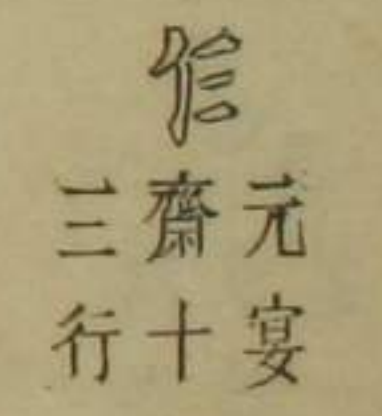 元宴
齋十
三行